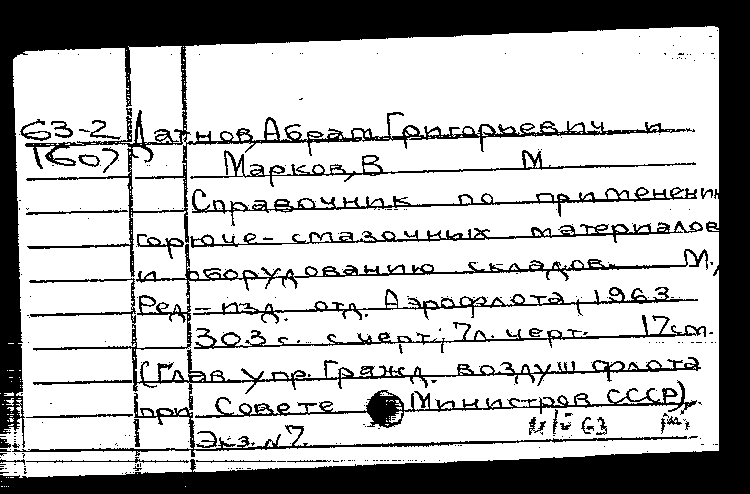 63-2 Латнов, Абрам Григорьевич и
1607 Марков, В М
Справочник по применени
горюче-смазочных материалов
и оборудованию складов. М.,
Ред-изд. отд. Аэрофлота, 1963.
303 с. с черт.; 7л. черт. 17см.
(Глав упр. Гражд. воздуш флота
при Совете Министров СССР)
Экз. № 7. 63